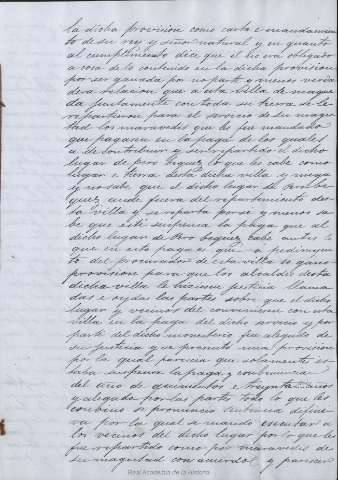 la dicha provision como carta e mandamien
to de su rey y señor natural y en quanto
al cumplimiento dice que el no era obligado
a cosa de lo contenido en la dicha provision
por ser ganada por no parte y menos verda
dera relacion que a esta villa de maque
da juntamente con toda su tierra se le
repartieron para el servicio de su mages
tad los maravedis que le fue mandado
que pagase en la paga de los quales
a de contribuir y ser repartido el dicho
lugar de pero lo que le cabe como
lugar e tierra desta dicha villa y niega
y no sabe que el dicho lugar de
quez acude fuera del repartimiento des
ta villa y se reparta por se y menos sa
be que este suspensa la paga que al
dicho lugar de cabe antes lo
que en esto pasa es que a pedimien
to del procurador de esta villa se gano
provision para que los alcaldes desta
dicha villa le hiciesen justicia llama
das e oydas las partes sobre que el dicho
lugar y vecinos del conviniesen con esta
villa en la paga del dicho servicio y por
parte del dicho monesterio fue alegado de
su justicia y se presento una provision
por la qual parecia que solamente es
taba suspensa la paga y cobranza
del año de quinientos e treynta años
y alegado por las partes todo lo que les
convino se pronuncio sentencia difiniti
va por la qual se mando executar a
los vecinos del dicho lugar por lo que les
fue repartido como por maravedis de
su magestad con acuerdo y parecer
Real Academia de la Historia